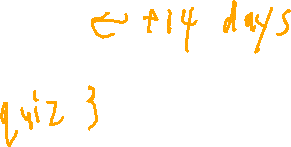 ← +14 days
quiz 3